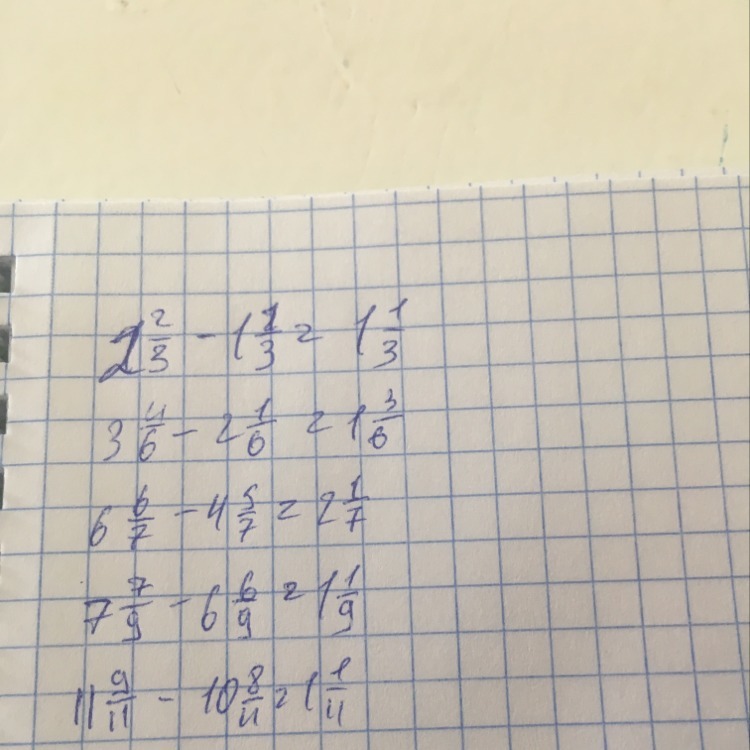 2 2/3 - 1 1/3 = 1 1/3
3 4/6 - 2 1/6 = 1 3/6
6 6/7 - 4 5/7 = 2 1/7
7 7/9 - 6 6/9 = 1 1/9
11 9/11 - 10 8/11 = 1 1/11